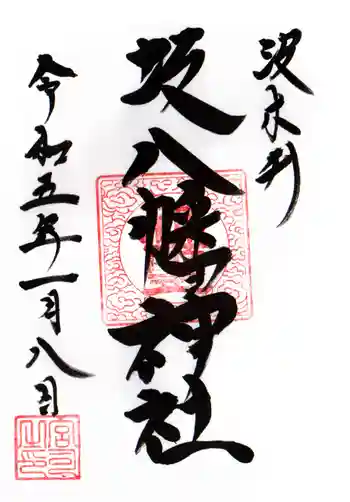 波木井
坂八幡神社
令和五年一月八日